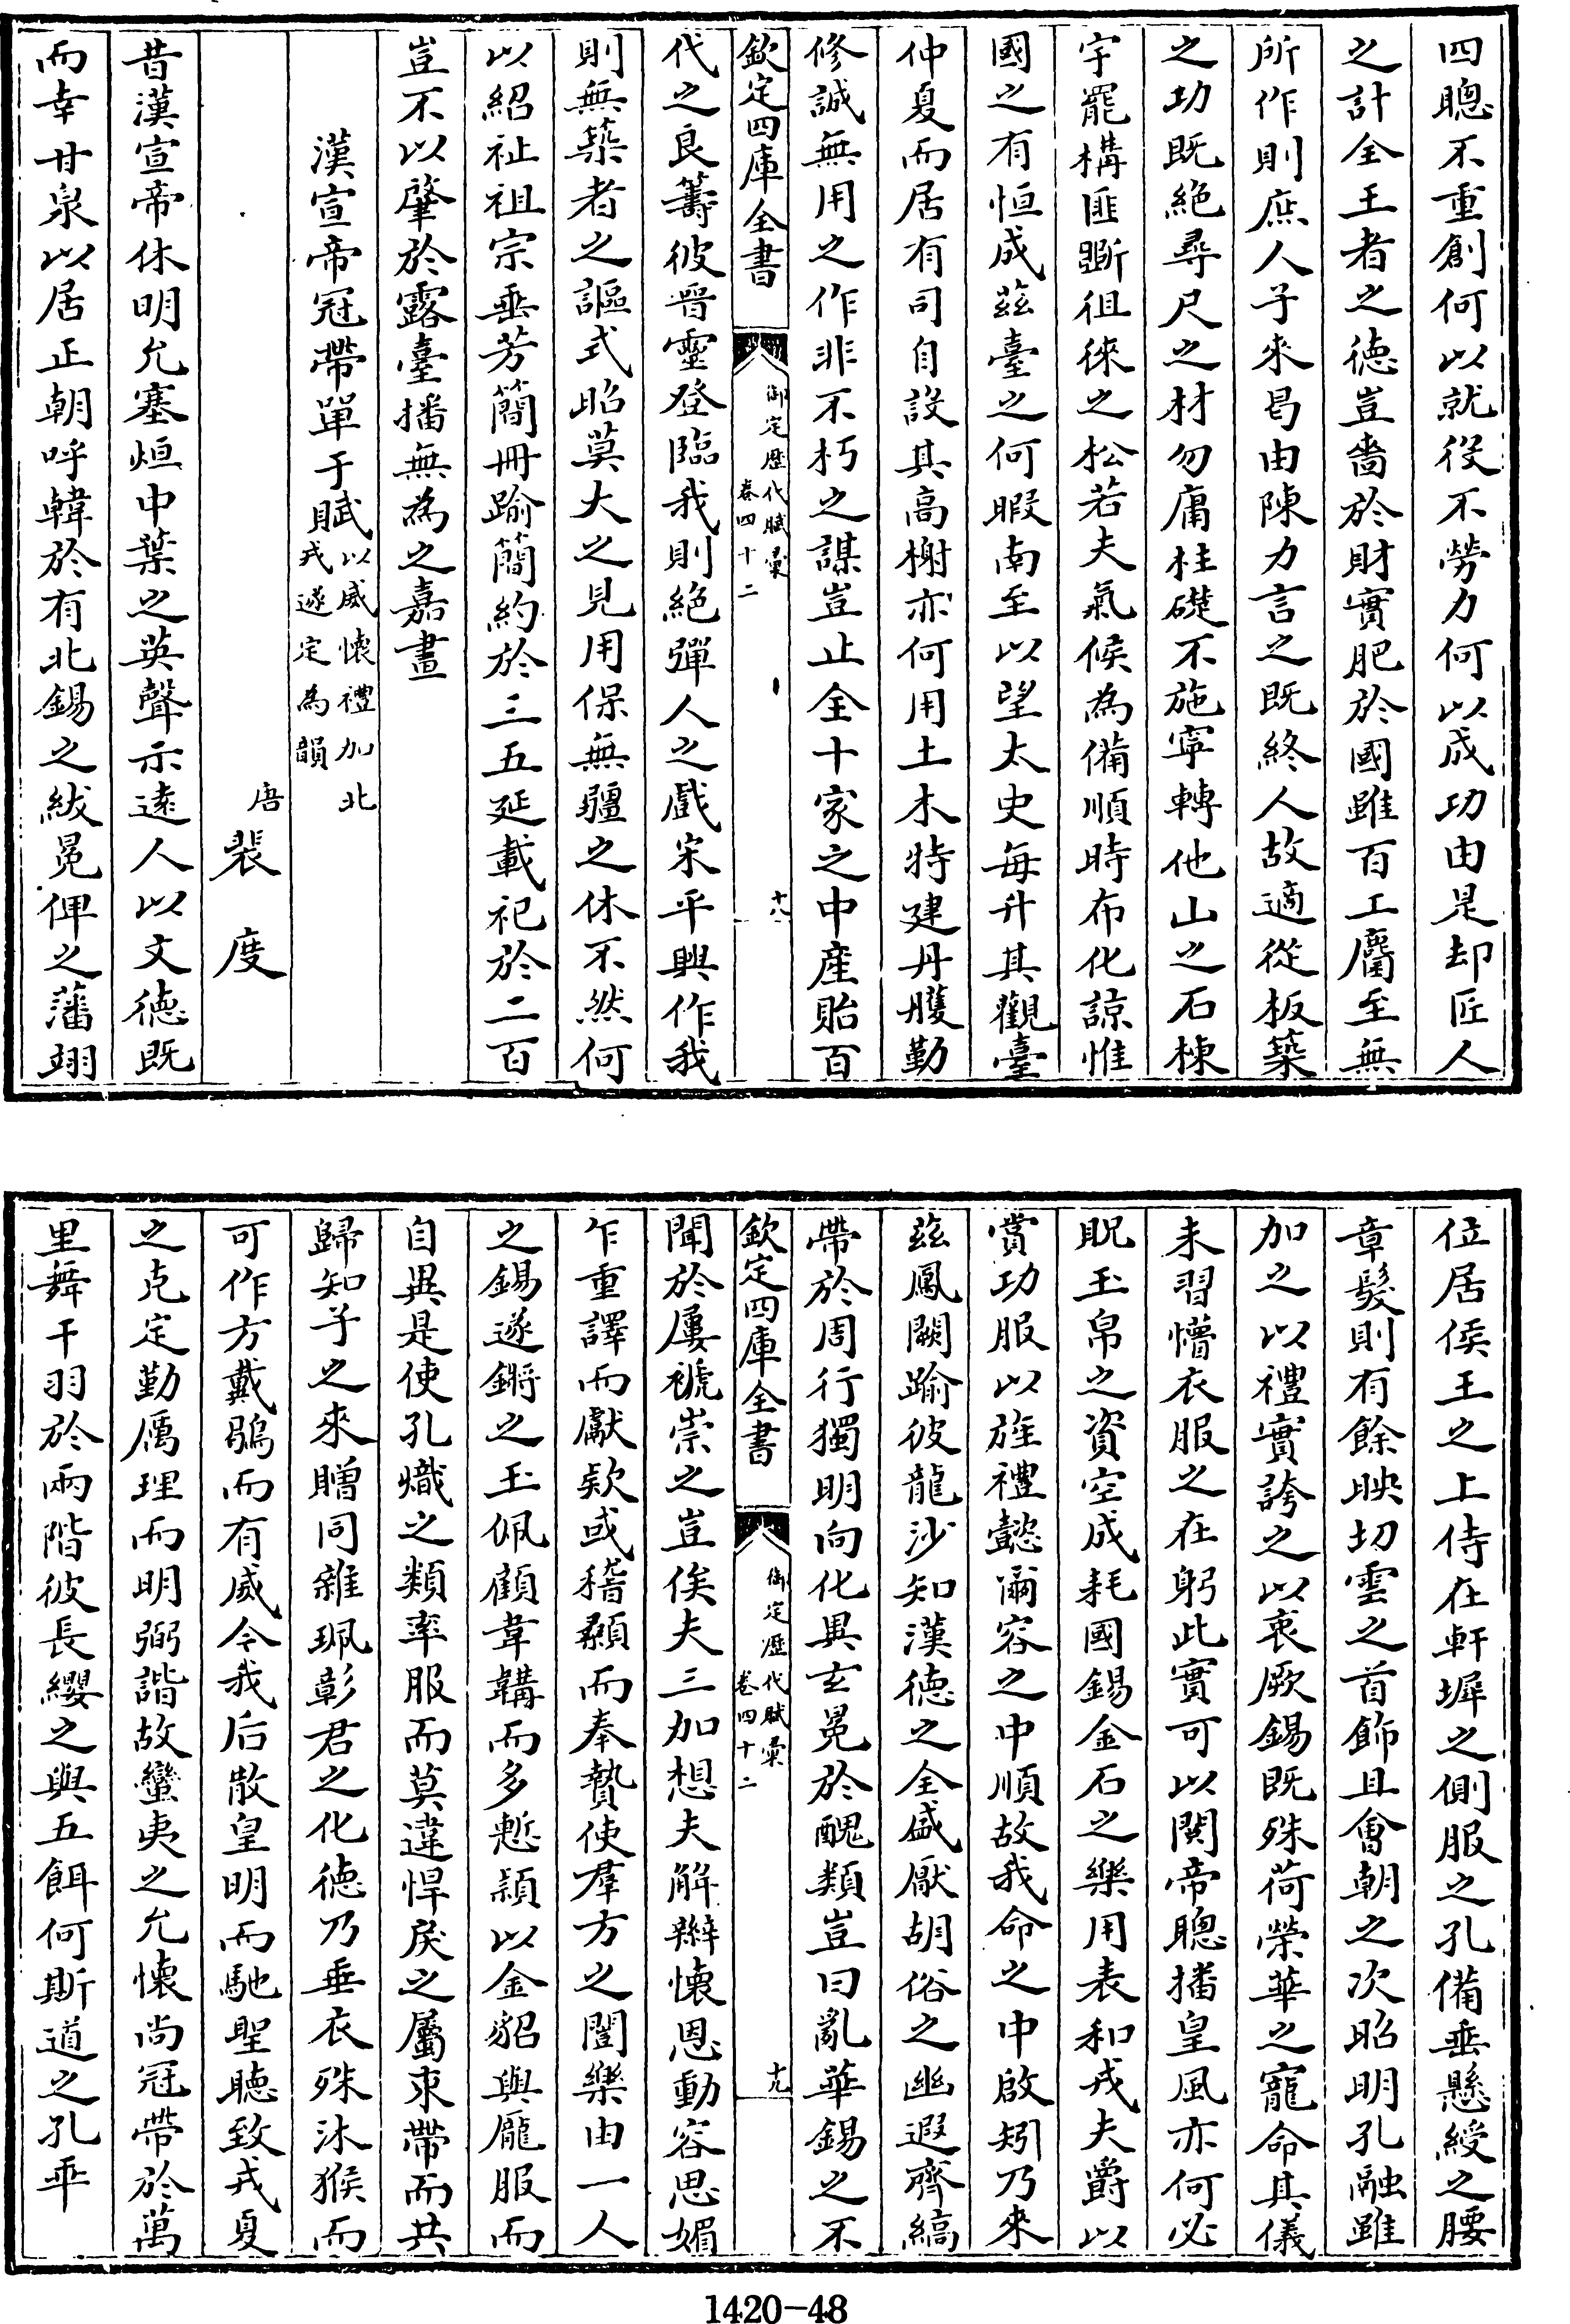 四聰不重創何以就役不勞力何以成功由是却匠人
之計全王者之德豈嗇於財實肥於國雖百工屬至無
所作則庶人子來曷由陳力言之既終人故適從板築
之功既絶尋尺之材勿庸柱礎不施寧轉他山之石棟
宇罷構匪斲徂徠之松若夫氣候為備順時布化諒惟
國之有恒成茲臺之何暇南至以望太史每升其觀臺
仲夏而居有司自設其高榭亦何用土木特建丹雘勤
修誠無用之作非不朽之謀豈止全十家之中產貽百
欽定四庫全書
御定歷代賦彙
卷四十二
十八
代之良籌彼晉靈登臨我則絶彈人之戲宋平興作我
則無築者之謳式昭莫大之見用保無疆之休不然何
以紹祉祖宗垂芳簡冊踰簡約於三五延載祀於二百
豈不以肇於露臺播無為之嘉畫
漢宣帝冠帶單于賦以威懷禮加北
戎遂定為韻
唐裴度
昔漢宣帝休明允塞烜中葉之英聲示遠人以文德既
而幸甘泉以居正朝呼韓於有北錫之紱冕俾之藩翊
位居侯王之上侍在軒墀之側服之孔備垂懸綬之腰
章髮則有餘映切雲之首飾且會朝之次昭明孔融雖
加之以禮實誇之以衷厥錫既殊荷榮華之寵命其儀
未習懵衣服之在躬此實可以閱帝聰播皇風亦何必
貺玉帛之資空成耗國錫金石之樂用表和戎夫爵以
賞功服以旌禮懿爾容之中順故我命之中啟矧乃來
茲鳳闕踰彼龍沙知漢德之全盛厭胡俗之幽遐齊縞
帶於周行獨明向化異玄冕於醜類豈曰亂華錫之不
欽定四庫全書
御定歷代賦彙
卷四十二
十九
聞於屢褫崇之豈俟夫三加想夫解辮懷恩動容思媚
乍重譯而獻欵或稽顙而奉贄使羣方之闓樂由一人
之錫遂鏘之玉佩顧韋韝而多慙顈以金貂與龎服而
自異是使孔熾之類率服而莫違悍戾之屬束帶而共
歸知子之來贈同雜珮彰君之化德乃垂衣殊沐猴而
可作方戴鶡而有威令我后散皇明而馳聖聽致戎夏
之克定勤厲理而明弼諧故蠻夷之允懷尚冠帶於萬
里舞干羽於兩階彼長纓之與五餌何斯道之孔乖
1420-48